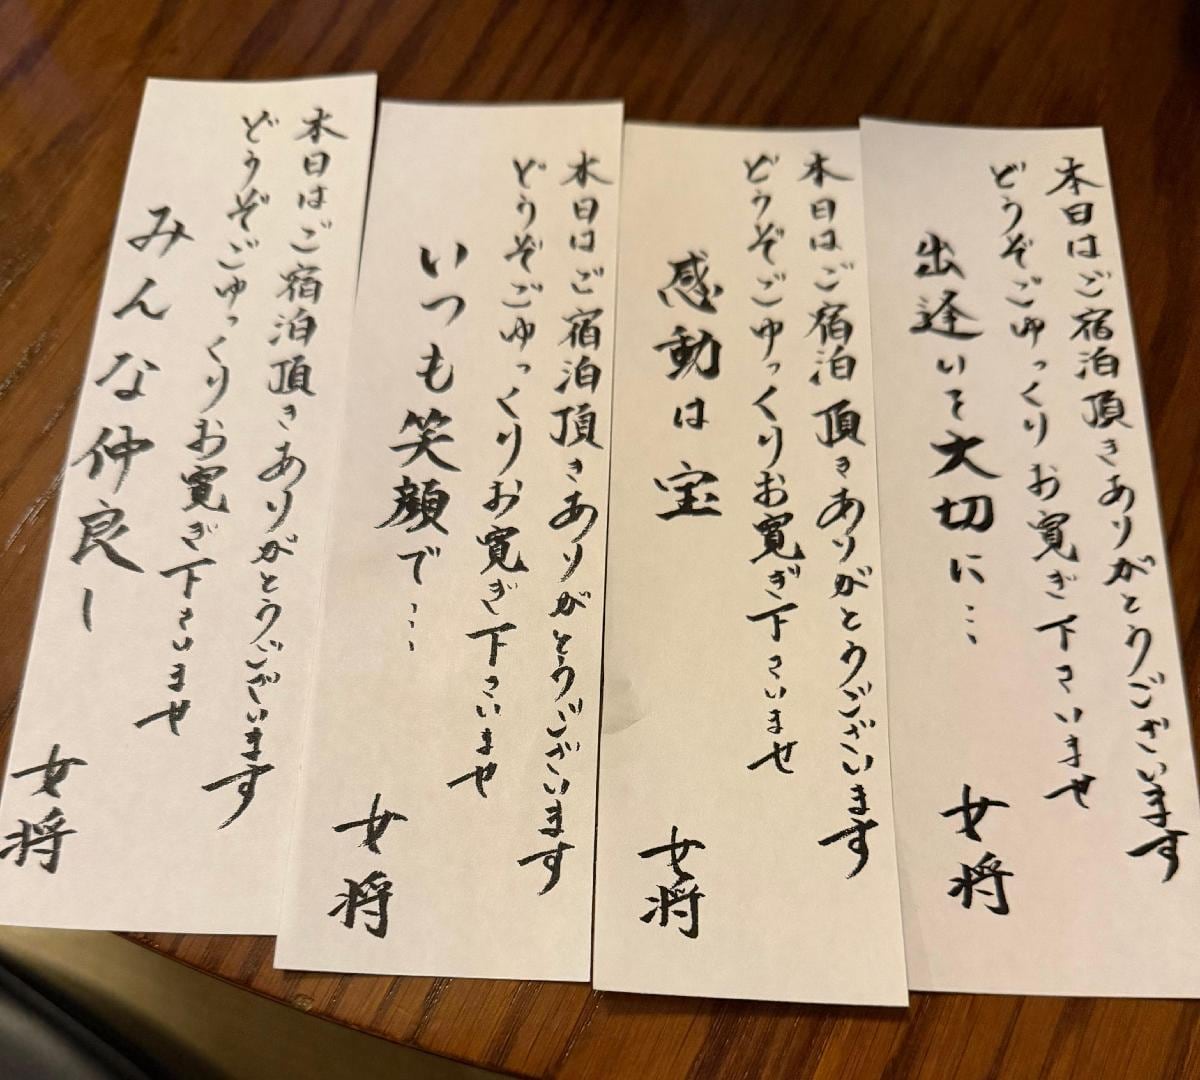 本日はご宿泊頂きありがとうございます
どうぞごゆっくりお寛ぎ下さいませ
出逢いを大切に…
女将
本日はご宿泊頂きありがとうございます
どうぞごゆっくりお寛ぎ下さいませ
感動は宝
女将
本日はご宿泊頂きありがとうございます
どうぞごゆっくりお寛ぎ下さいませ
いつも笑顔で…
女将
本日はご宿泊頂きありがとうございます
どうぞごゆっくりお寛ぎ下さいませ
みんな仲良し
女将